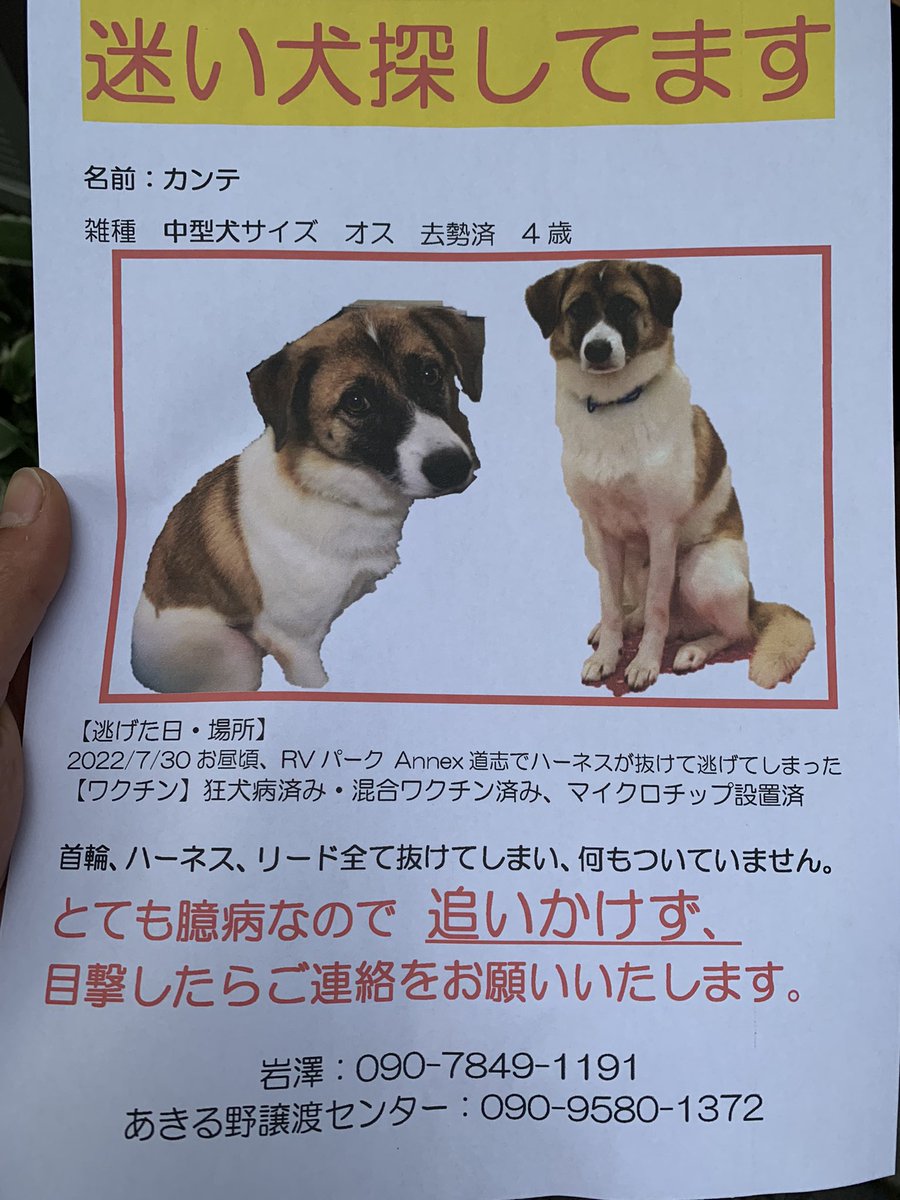 迷い犬探してます
名前：カンテ
雑種　中型犬サイズ　オス　去勢済　4歳
【逃げた日・場所】
2022/7/30お昼頃、RVパーク Annex道志でハーネスが抜けて逃げてしまった
【ワクチン】狂犬病済み・混合ワクチン済み、マイクロチップ設置済
首輪、ハーネス、リード全て抜けてしまい、何もついていません。
とても臆病なので 追いかけず、
目撃したらご連絡をお願いいたします。
岩澤：090-7849-1191
あきる野譲渡センター：090-9580-1372